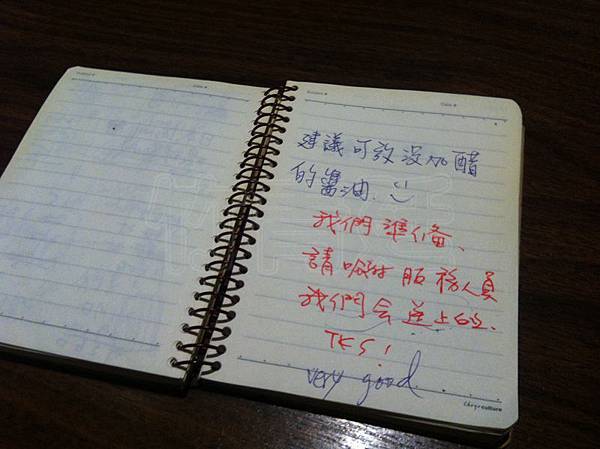 建議可放沒加醋
的醬油.
我們準備、
請 服務人員
我們会送上的、
TKS!
very good